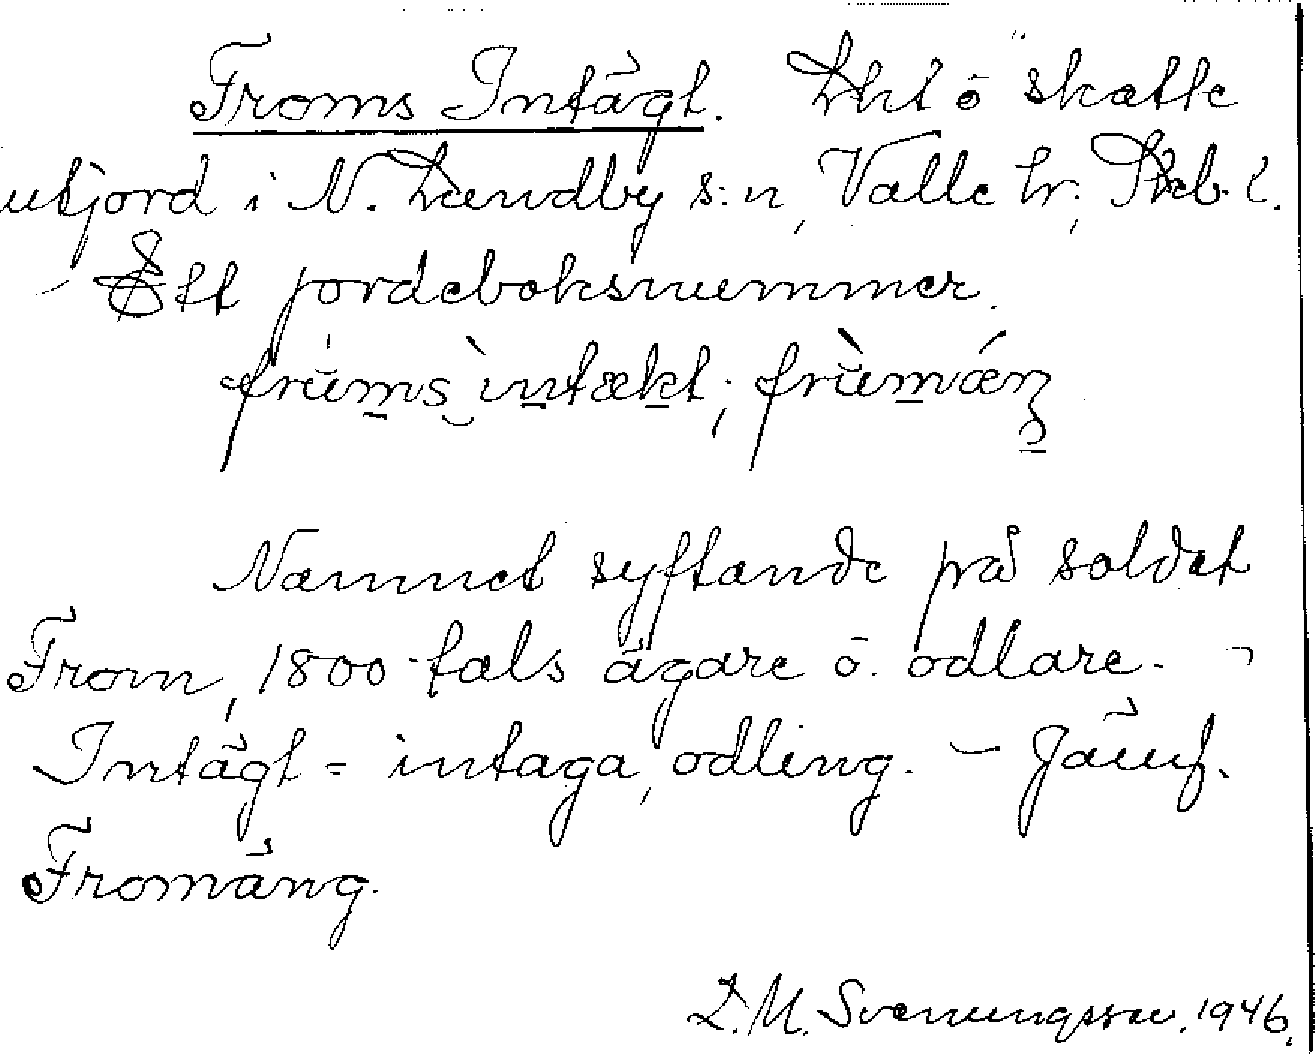 Froms Intägt. Lht ö skatte
utjord i N. Lundby s:n, Valle hr; Skb. l.
Ett jordeboksnummer.
frùms ìntækt; frùmǽŋ
Namnet syftande på soldat
From, 1800-tals ägare o. odlare. -
Intägt = intaga, odling. - Jämf.
Fromäng.
L.M. Svenungsson. 1946.